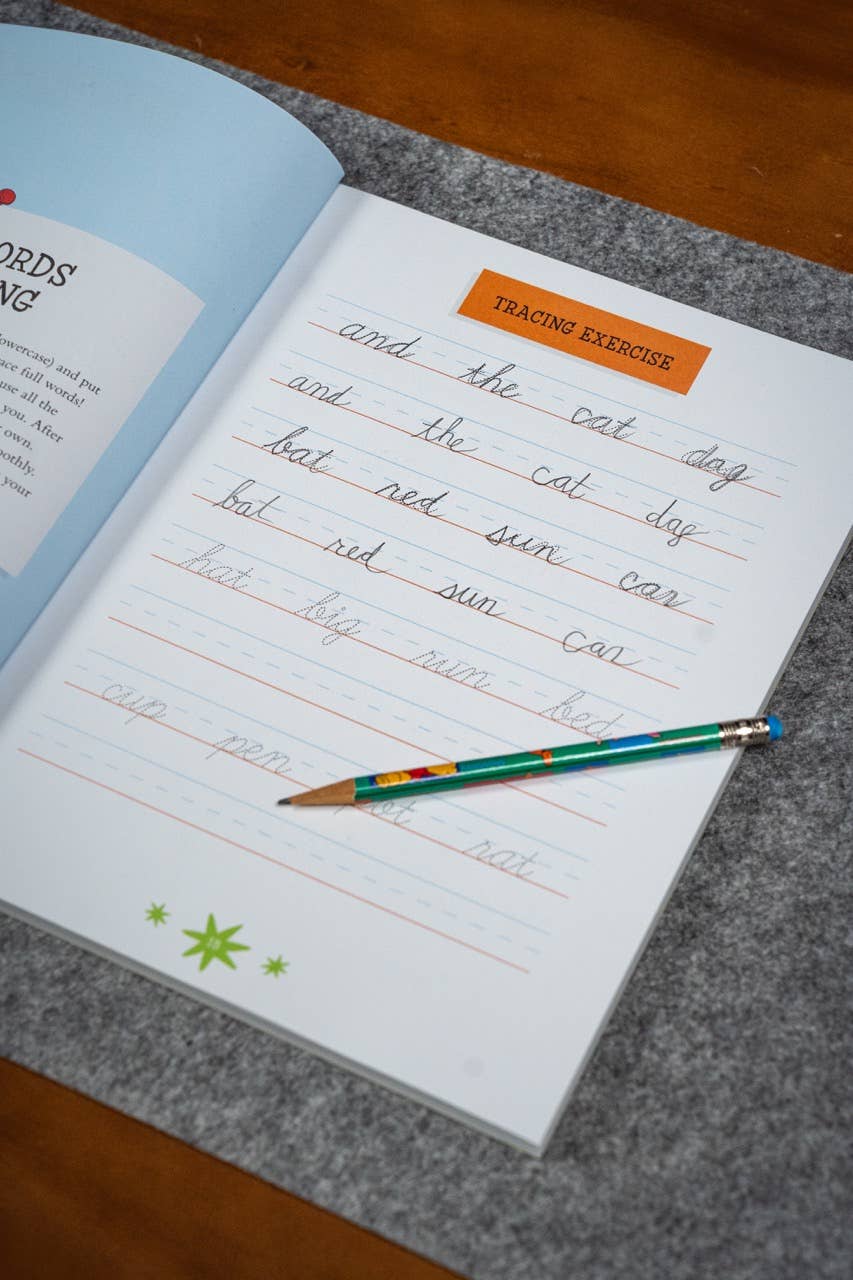 ORDS
NG
owercase) and put
ace full words!
use all the
you. After
own.
oothly.
your
TRACING EXERCISE
and the cat dog
and the cat dog
bat red sun car
bat red sun car
hat big run bed
cup pen rat